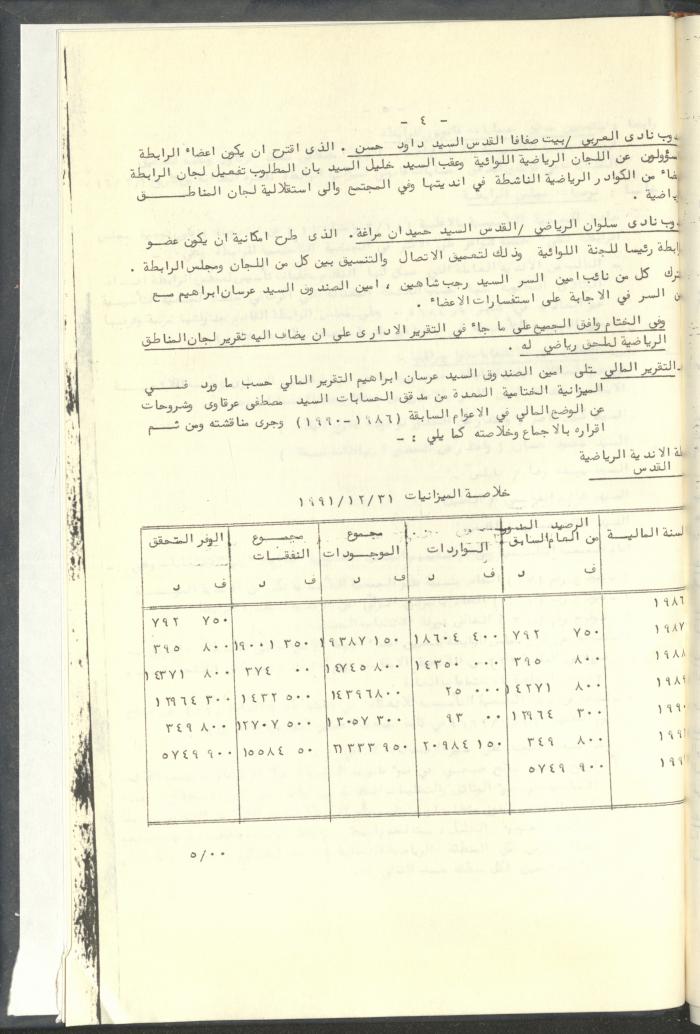 - ٤ -
وب نادى العربي /بيت صفافا القدس السيد داود حسن . الذى اقترح ان يكون اعضاء الرابطة
سؤولون عن اللجان الرياضية اللوائية وعقب السيد خليل السيد بان المطلوب تفعيل لجان الرابطة
ضاء من الكوادر الرياضية الناشطة في انديتها وفي المجتمع والى استقلالية لجان المناطــــق
ياضية .
وب نادى سلوان الرياضي /القدس السيد حميدان مراغة. الذى طرح امكانية ان يكون عضــو
ابطة رئيسا للجنة اللوائية وذلك لتعميق الاتصال والتنسيق بين كل من اللجان ومجلس الرابطة .
ترك كل من نائب امين السر السيد رجب شاهين ، امين الصندوق السيد عرسان ابراهيم مــع
ن السر في الاجابة على استفسارات الاعضاء .
وفي الختام وافق الجميع على ما جاء في التقرير الادارى على ان يضاف اليه تقرير لجان المناطق
الرياضية لملحق رياضي له .
التقرير المالي تلى امين الصندوق السيد عرسان ابراهيم التقرير المالي حسب ما ورد فــــي
الميزانية الختامية المعدة من مدقق الحسابات السيد مصطفى عرقاوى وشروحات
عن الوضع المالي في الاعوام السابقة (١٩٨٦-١٩٩٠) وجرى مناقشته ومن ثــم
اقراره بالاجماع وخلاصته كما يلي : -
طة الاندية الرياضية
القدس
خلاصة الميزانيات ١٩٩١/١٢/٣١
لسنة المالية الرصيد المدور من العام السابق الــواردات مجموع الموجودات مجمــوع النفقــات الوفر المتحقق
ف د ف د ف د ف د ف د
١٩٨٦ ٧٥٠ ٧٩٢
١٩٨٧ ٧٥٠ ٧٩٢ ٤٠٠ ١٨٦٠٤ ١٥٠ ١٩٣٨٧ ٣٥٠ ١٩٠٠١ ٨٠٠ ٣٩٥
١٩٨٨ ٨٠٠ ٣٩٥ ٠٠٠ ١٤٣٥٠ ٨٠٠ ١٤٧٤٥ ٠٠ ٣٧٤ ٨٠٠ ١٤٣٧١
١٩٨٩ ٨٠٠ ١٤٢٧١ ٠٠٠ ٢٥ ٨٠٠ ١٤٣٩٦ ٥٠٠ ١٤٣٢ ٣٠٠ ١٢٩٦٤
١٩٩٠ ٣٠٠ ١٢٩٦٤ ٠٠ ٩٣ ٣٠٠ ١٣٠٥٧ ٥٠٠ ١٢٧٠٧ ٨٠٠ ٣٤٩
١٩٩ ٨٠٠ ٣٤٩ ١٥٠ ٢٠٩٨٤ ٩٥٠ ٢١٣٣٣ ٥٠ ١٥٥٨٤ ٩٠٠ ٥٧٤٩
١٩٩ ٩٠٠ ٥٧٤٩
٥/٠٠